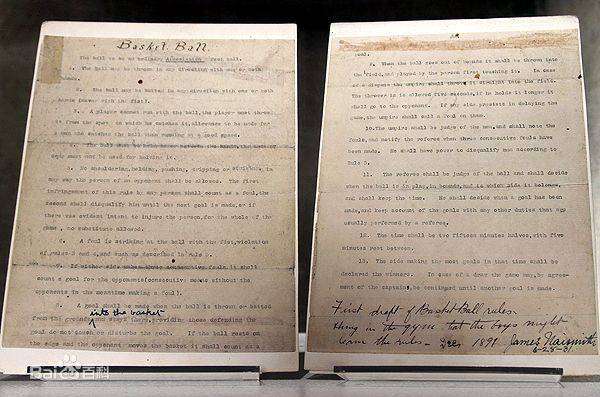 Basket Ball.
The ball to be an ordinary Association foot ball.
1. The ball may be thrown in any direction with one or both
hands.
2. The ball may be batted in any direction with one or both
hands (never with the fist).
3. A player cannot run with the ball, the player must throw
it from the spot on which he catches it, allowance to be made for
a man who catches the ball when running at a good speed.
4. The ball must be held in or between the hands, the arms or
body must not be used for holding it.
5. No shouldering, holding, pushing, tripping or striking, in
any way the person of an opponent shall be allowed. The first
infringement of this rule by any person shall count as a foul, the
second shall disqualify him until the next goal is made, or if
there was evident intent to injure the person, for the whole of the
game, no substitute allowed.
6. A foul is striking at the ball with the fist, violation
of rules 3 and 4, and such as described in rule 5.
7. If either side makes three consecutive fouls, it shall
count a goal for the opponents (consecutive means without the
opponents in the meantime making a foul).
8. A goal shall be made when the ball is thrown or batted
into the basket
from the grounds and stays there, providing those defending the
goal do not touch or disturb the goal. If the ball rests on the
edge and the opponent moves the basket it shall count as a
goal.
9. When the ball goes out of bounds it shall be thrown into
the field, and played by the person first touching it. In case
of a dispute the umpire shall throw it straight into the field.
The thrower in is allowed five seconds, if he holds it longer it
shall go to the opponent. If any side persists in delaying the
game, the umpire shall call a foul on them.
10. The umpire shall be judge of the men, and shall note the
fouls, and notify the referee when three consecutive fouls have
been made. He shall have power to disqualify men according to
Rule 5.
11. The referee shall be judge of the ball and shall decide
when the ball is in play, in bounds, and to which side it belongs,
and shall keep the time. He shall decide when a goal has been
made, and keep account of the goals with any other duties that are
usually performed by a referee.
12. The time shall be two fifteen minutes halves, with five
minutes rest between.
13. The side making the most goals in that time shall be
declared the winners. In case of a draw the game may, by agree-
ment of the captains, be continued until another goal is made.
First draft of Basket Ball rules.
Hung in the gym that the boys might
learn the rules - Dec 1891 James Naismith
6-28-31
Bai 百科